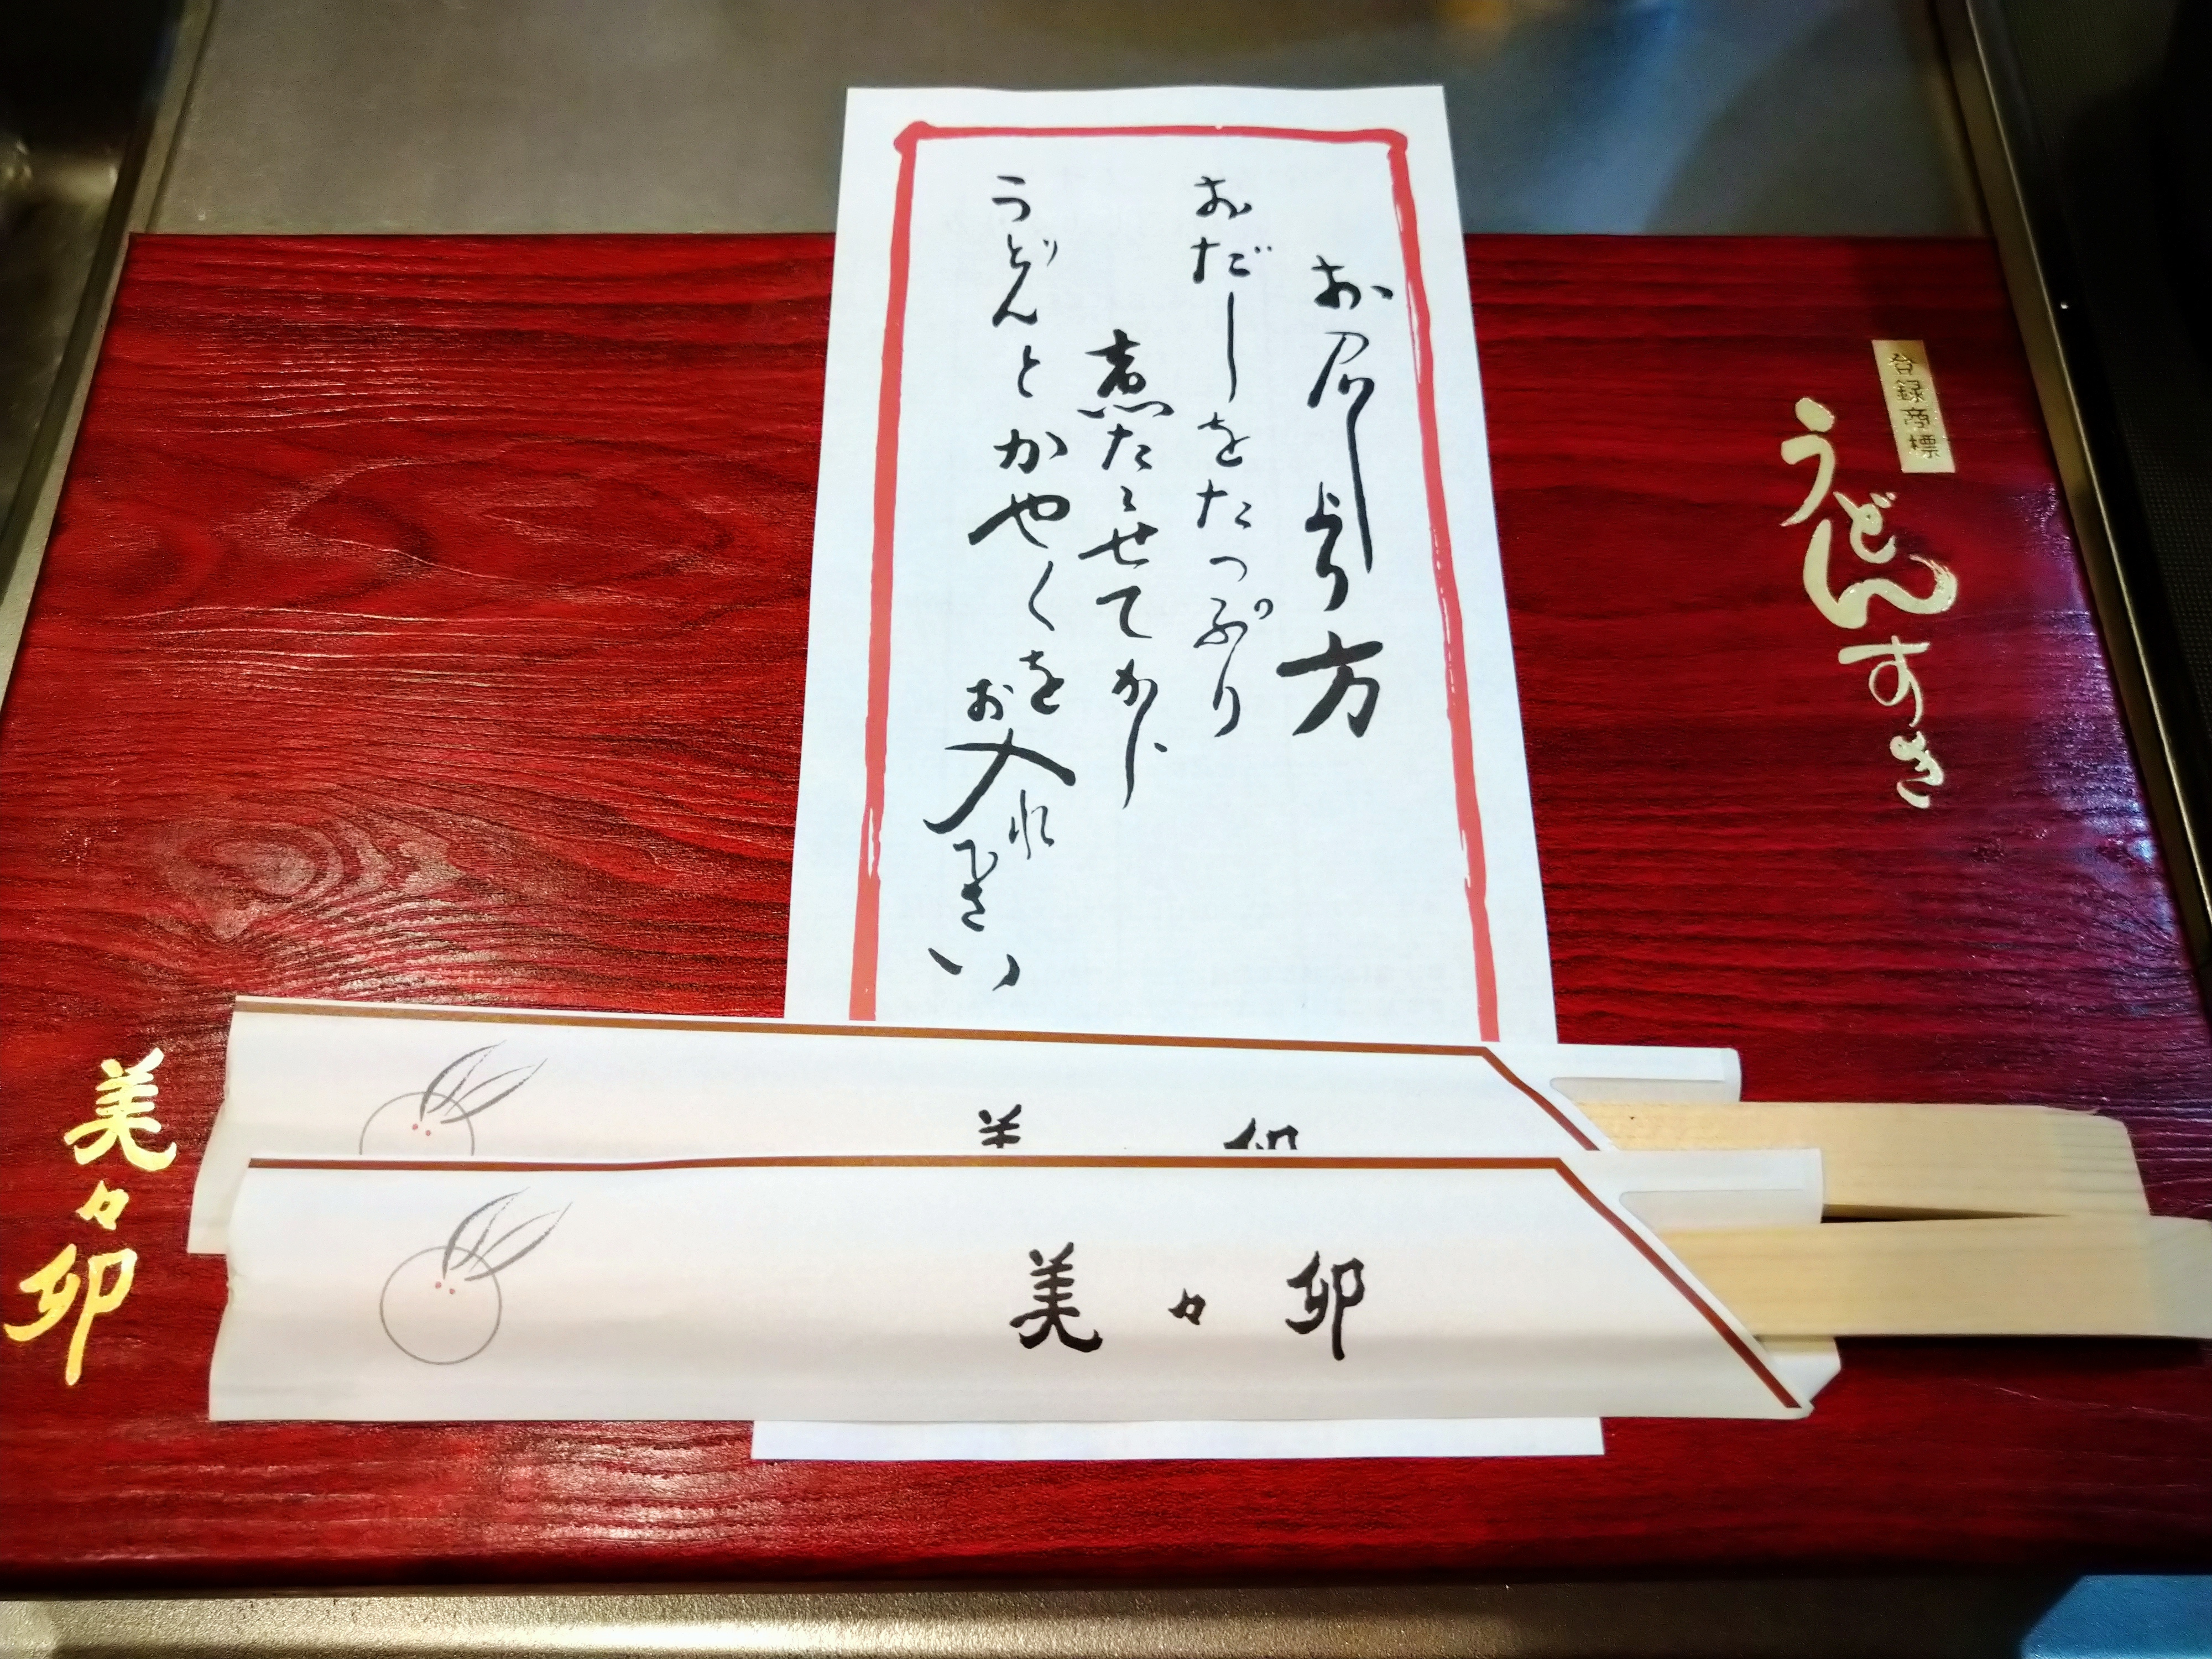 登録商標
うどんすき
お召し上り方
おだしをたっぷり
煮たゝせてから
うどんとかやくを
お入れ下さい
美々卯
美々卯